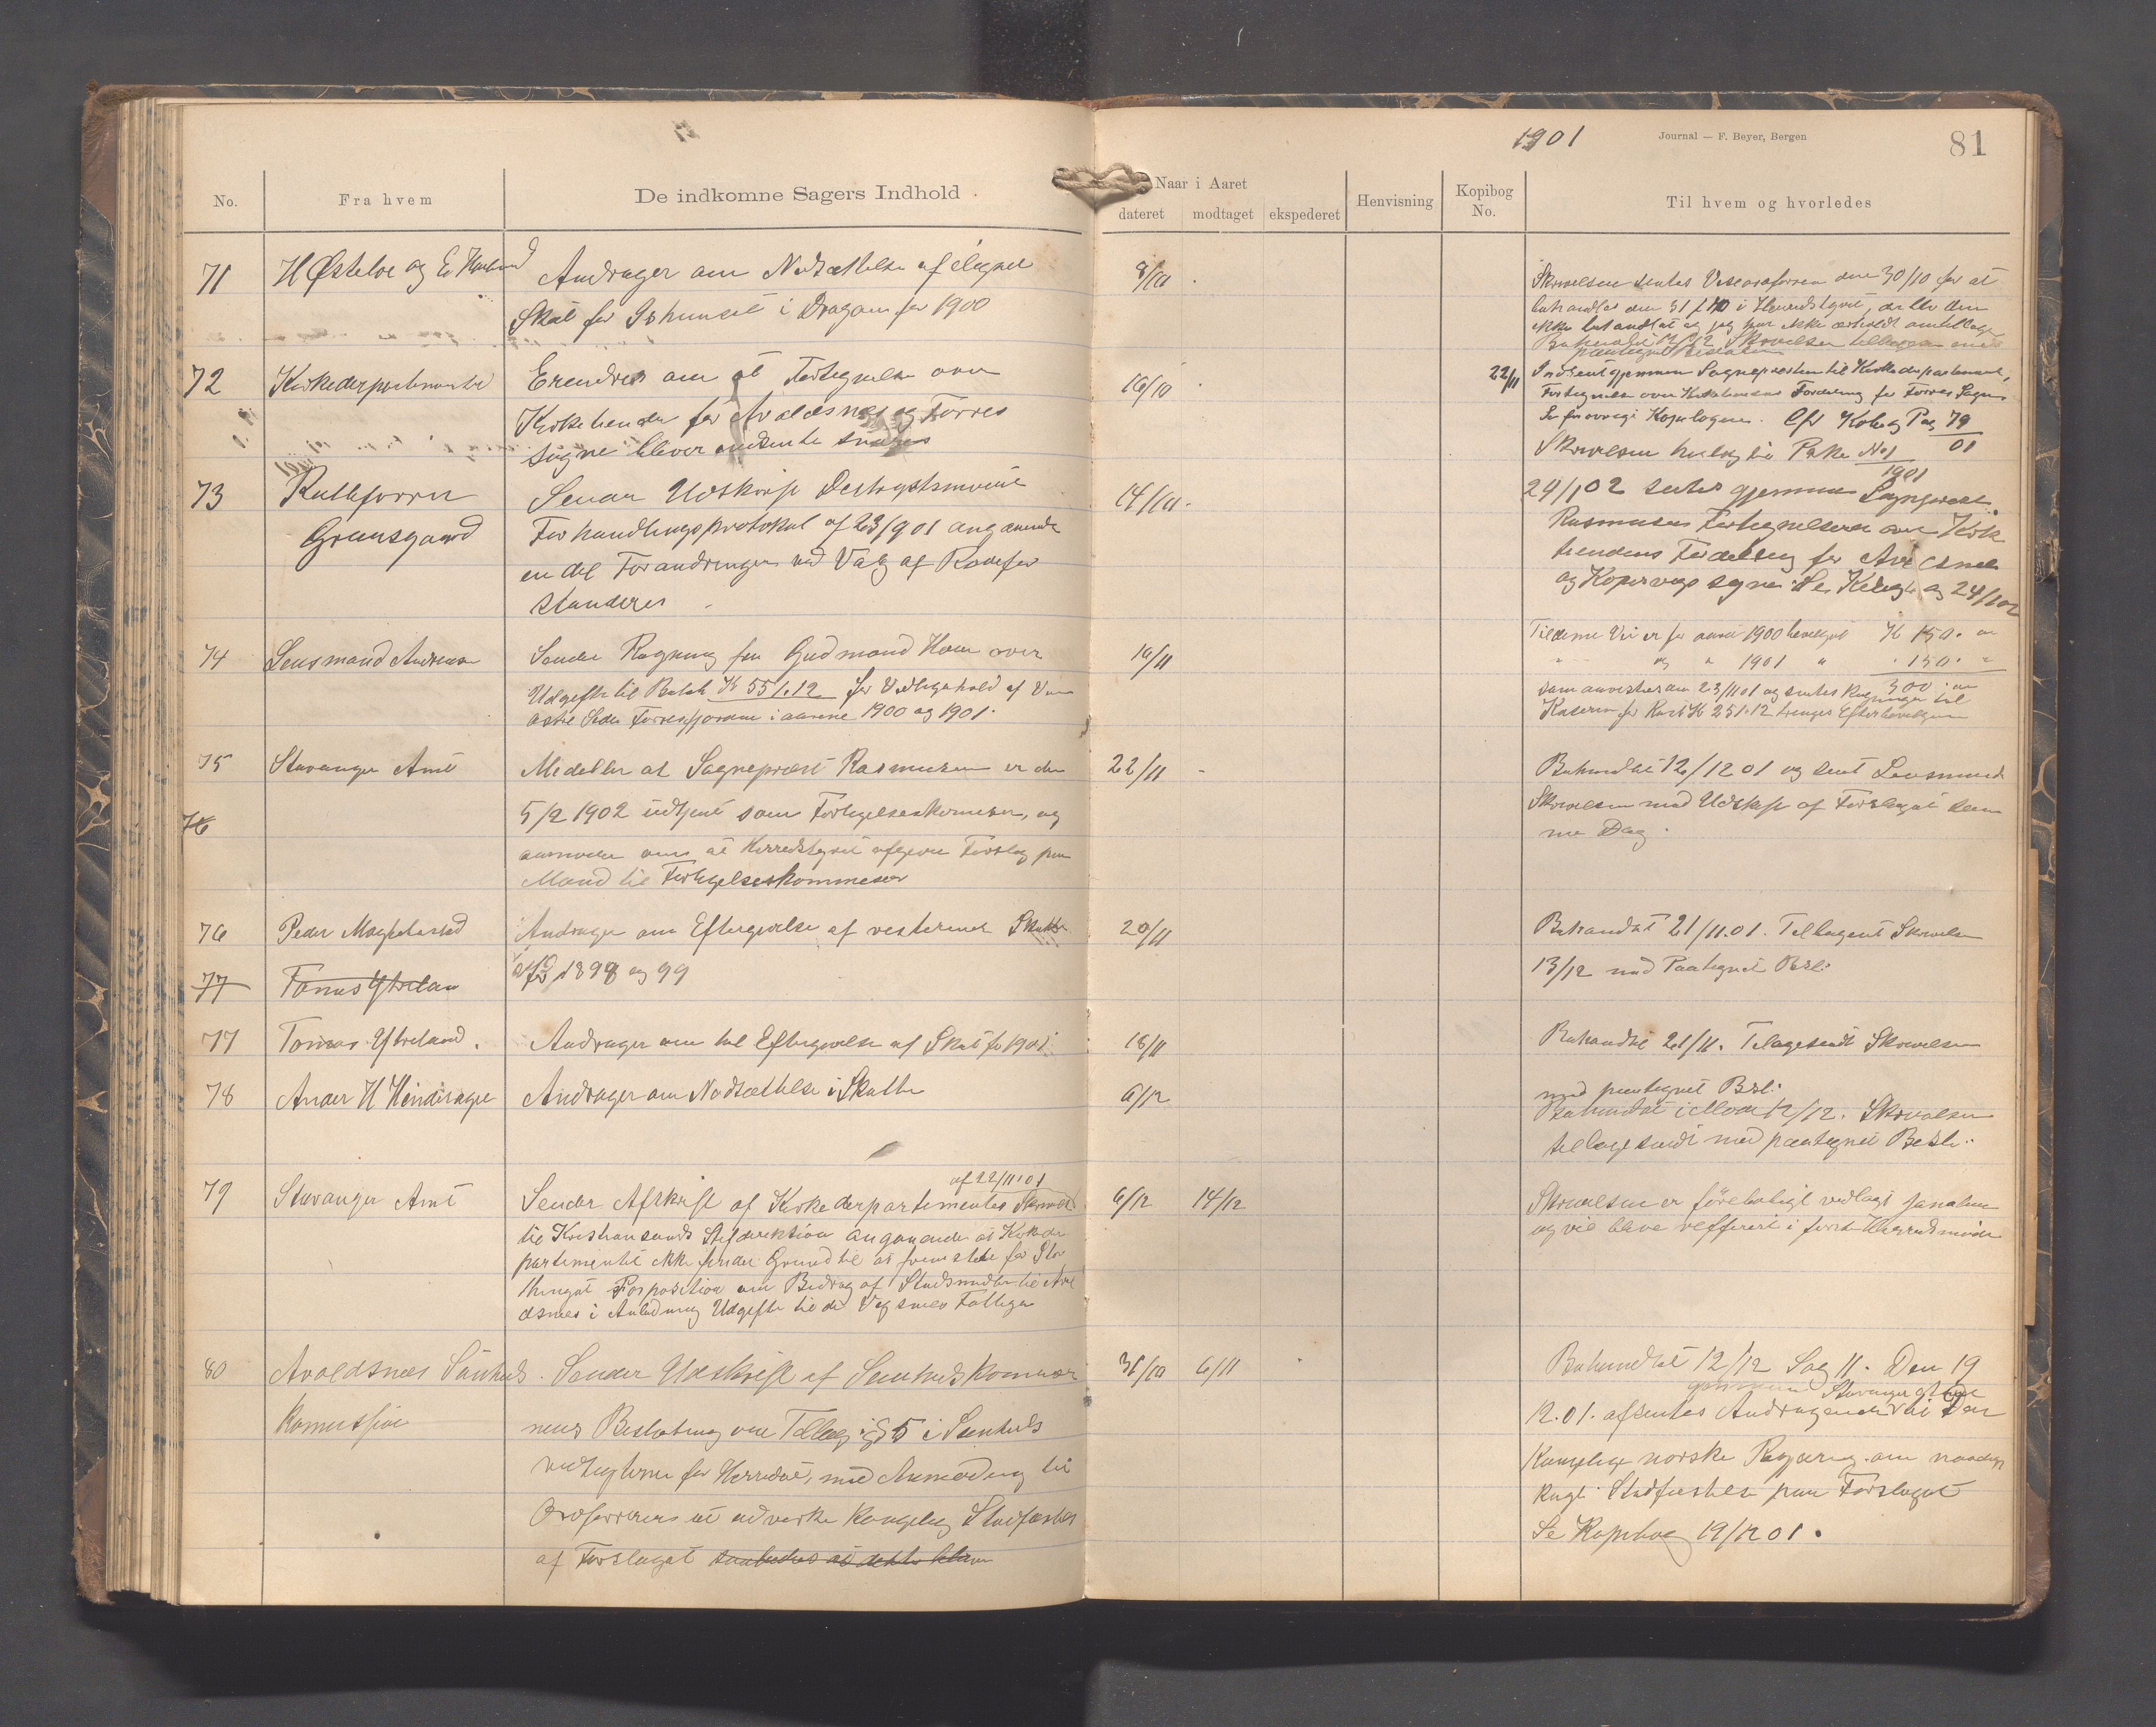 1901
Journal — F. Beyer, Bergen
81
No.
Fra hvem
De indkomne Sagers Indhold
Naar i Aaret
dateret
modtaget
ekspederet
Henvisning
Kopibog
No.
Til hvem og hvorledes
71
H Østebø og
Andrager om Nedsættelse af ilagnet
Skat for Ishuset i Dragøen for 1900
8/10
Skrivelsen sentes Viseordføreren den 30/10 for at
behandles den 31/10 i Herredstyret, da blev den
ikke behandlet og jeg har ikke
Behandlet 12/12 Skrivelsen
72
Kirkedepartementet
Erindrer om at Fortegnelse over
Kirketiender for Avaldsnes og Torves
sogne bliver indsente snarest
16/10
22/11
Indsent gjennem Sognepresten til Kirkedepartementet,
Fortegnelse over Kirketiendens Fordeling for Torves Sogn
Se forøvrigt Kopibogen. Cfr Kobog Pag 79
01
Skrivelsen henlagt i Pakke No 1
1901
73
Rutleforren
Grønsgaard
Sender Udskrift
Forhandlingsprotokol af 23/9 01 angaaende
en del Forandringer ved Valg af Rodefor
standeres
14/10
24/1 02 sentes gjennem Sogneprest
Rasmusen Fortegnelsen over Kirk
tiendens Fordeling for Avaldsnes
og Kopervigs sogne. Se Kobog 24/1 02
74
Lensmand Andreasen
Sender Regning fra Gudmand Hove over
Udgifter til Beløb Kr 551.12 for Vedligehold af
i aarene 1900 og 1901.
10/11
Til denne Vei er for aaret 1900 bevilget Kr 150.
" " 1901 " 150.
300
som anvistes den 23/11 01 og sentes Regningen til
Kasseren for Rest Kr 251.12 trenges Efterbevilgning
75
Stavanger Amt
Meddeler at Sogneprest Rasmusen er den
5/2 1902 udtjent som Forligelseskomisær, og
anmoder om at Herredstyret afgiver Forslag paa
Mand til Forligelseskommisær
22/11
Behandlet 12/12 01 og sent Lensmand
Skrivelsen med Udskrift af Forslaget sam
me Dag.
76
76
Peder
Andrager om Eftergivelse af resterende Skatter
for 1898 og 99
20/11
Behandlet 21/11.01. Tilbagesent Skrivelsen
13/12 med Paategnet Besl:
77
Tomas Ytreland
77
Tomas Ytreland.
Andrager om hel Eftergivelse af Skat for 1901
18/11
Behandlet 21/11. Tilbagesendt Skrivelsen
med paategnet Besl:
78
Andrager om Nedsættelse i Skatten
6/12
Behandlet i Møde 12/12. Skrivelsen
tilbagesendt med paategnet Besl.
79
Stavanger Amt
af 22/11 01
Sender Afskrift af Kirkedepartementets Skrivelse
til Kristiansands Stiftdirektion angaaende at Kirkede
partementet ikke finder Grund til at fremsette for Stor
thinget Proposition om Bidrag af Statsmidler til Aval
dsnes i Anledning Udgifter til de Vigsnes Fattige
6/12
14/12
Skrivelsen er foreløbigt vedlagt Journalen
og vil blive refferert i første Herredsmøde
80
Avaldsnes Sunheds
Komission
Sender Udskrift af Sunhedskommisio
nens Beslutning om Tillæg i § 5 i Sunheds
vedtægterne for Herredet, med Anmodning til
Ordføreren at udvirke Kongelig Stadfæstelse
af Forslaget saaledes at dette bliver
31/10
6/11
Behandlet 12/12 Sag 11. Den 19
gjennem Stavanger Amt
12.01. afsentes Andragende til Den
Kongelige norske Regjering om naadigst
Kngl. Stadfæstelse paa Forslaget
Se Kopibog 19/12 01.